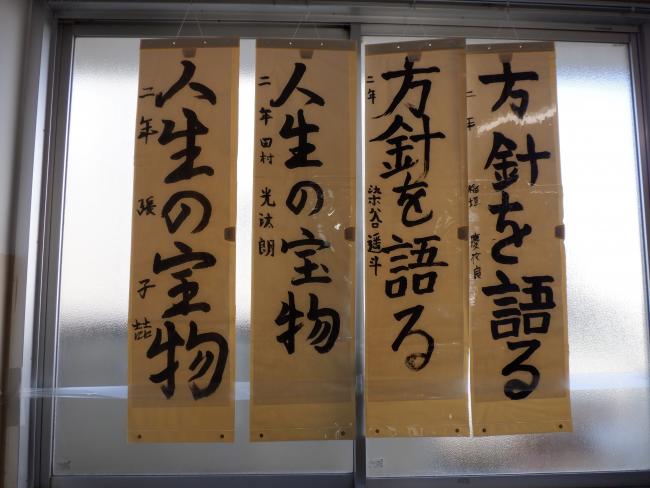 方針を語る
二年 稲垣
方針を語る
二年 染谷遥斗
人生の宝物
二年 田村 光汰朗
人生の宝物
二年 張 子喆